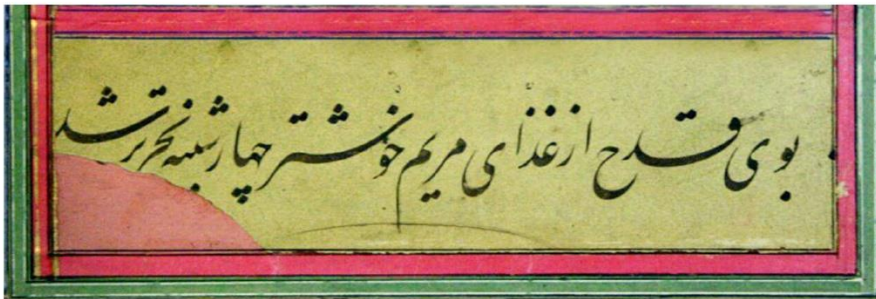 بوی قدح از غذای مریم خوشتر چهارشنبه تحریر شد